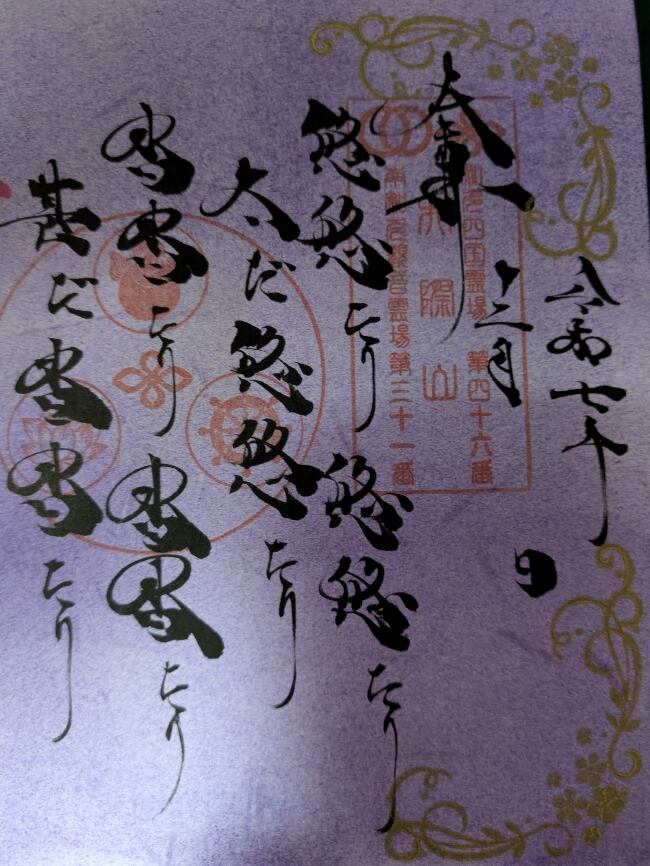 令和七年
十二月 日
奉拝
知多四国霊場 第四十六番
井際山
南知多観音霊場第三十一番
悠悠たり 悠悠たり
太だ悠悠たり
杳杳たり 杳杳たり
甚だ杳杳たり